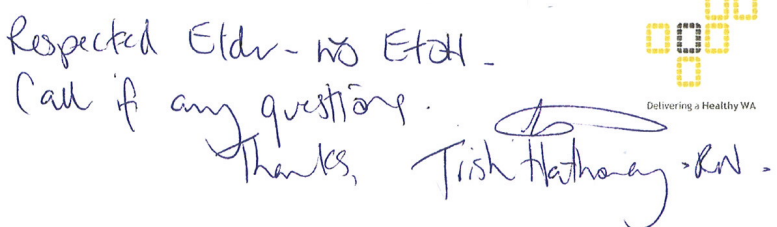 Respected Elder - no EtOH -
Call if any questions.
Thanks, Trish Hathaway - RN.
Delivering a Healthy WA